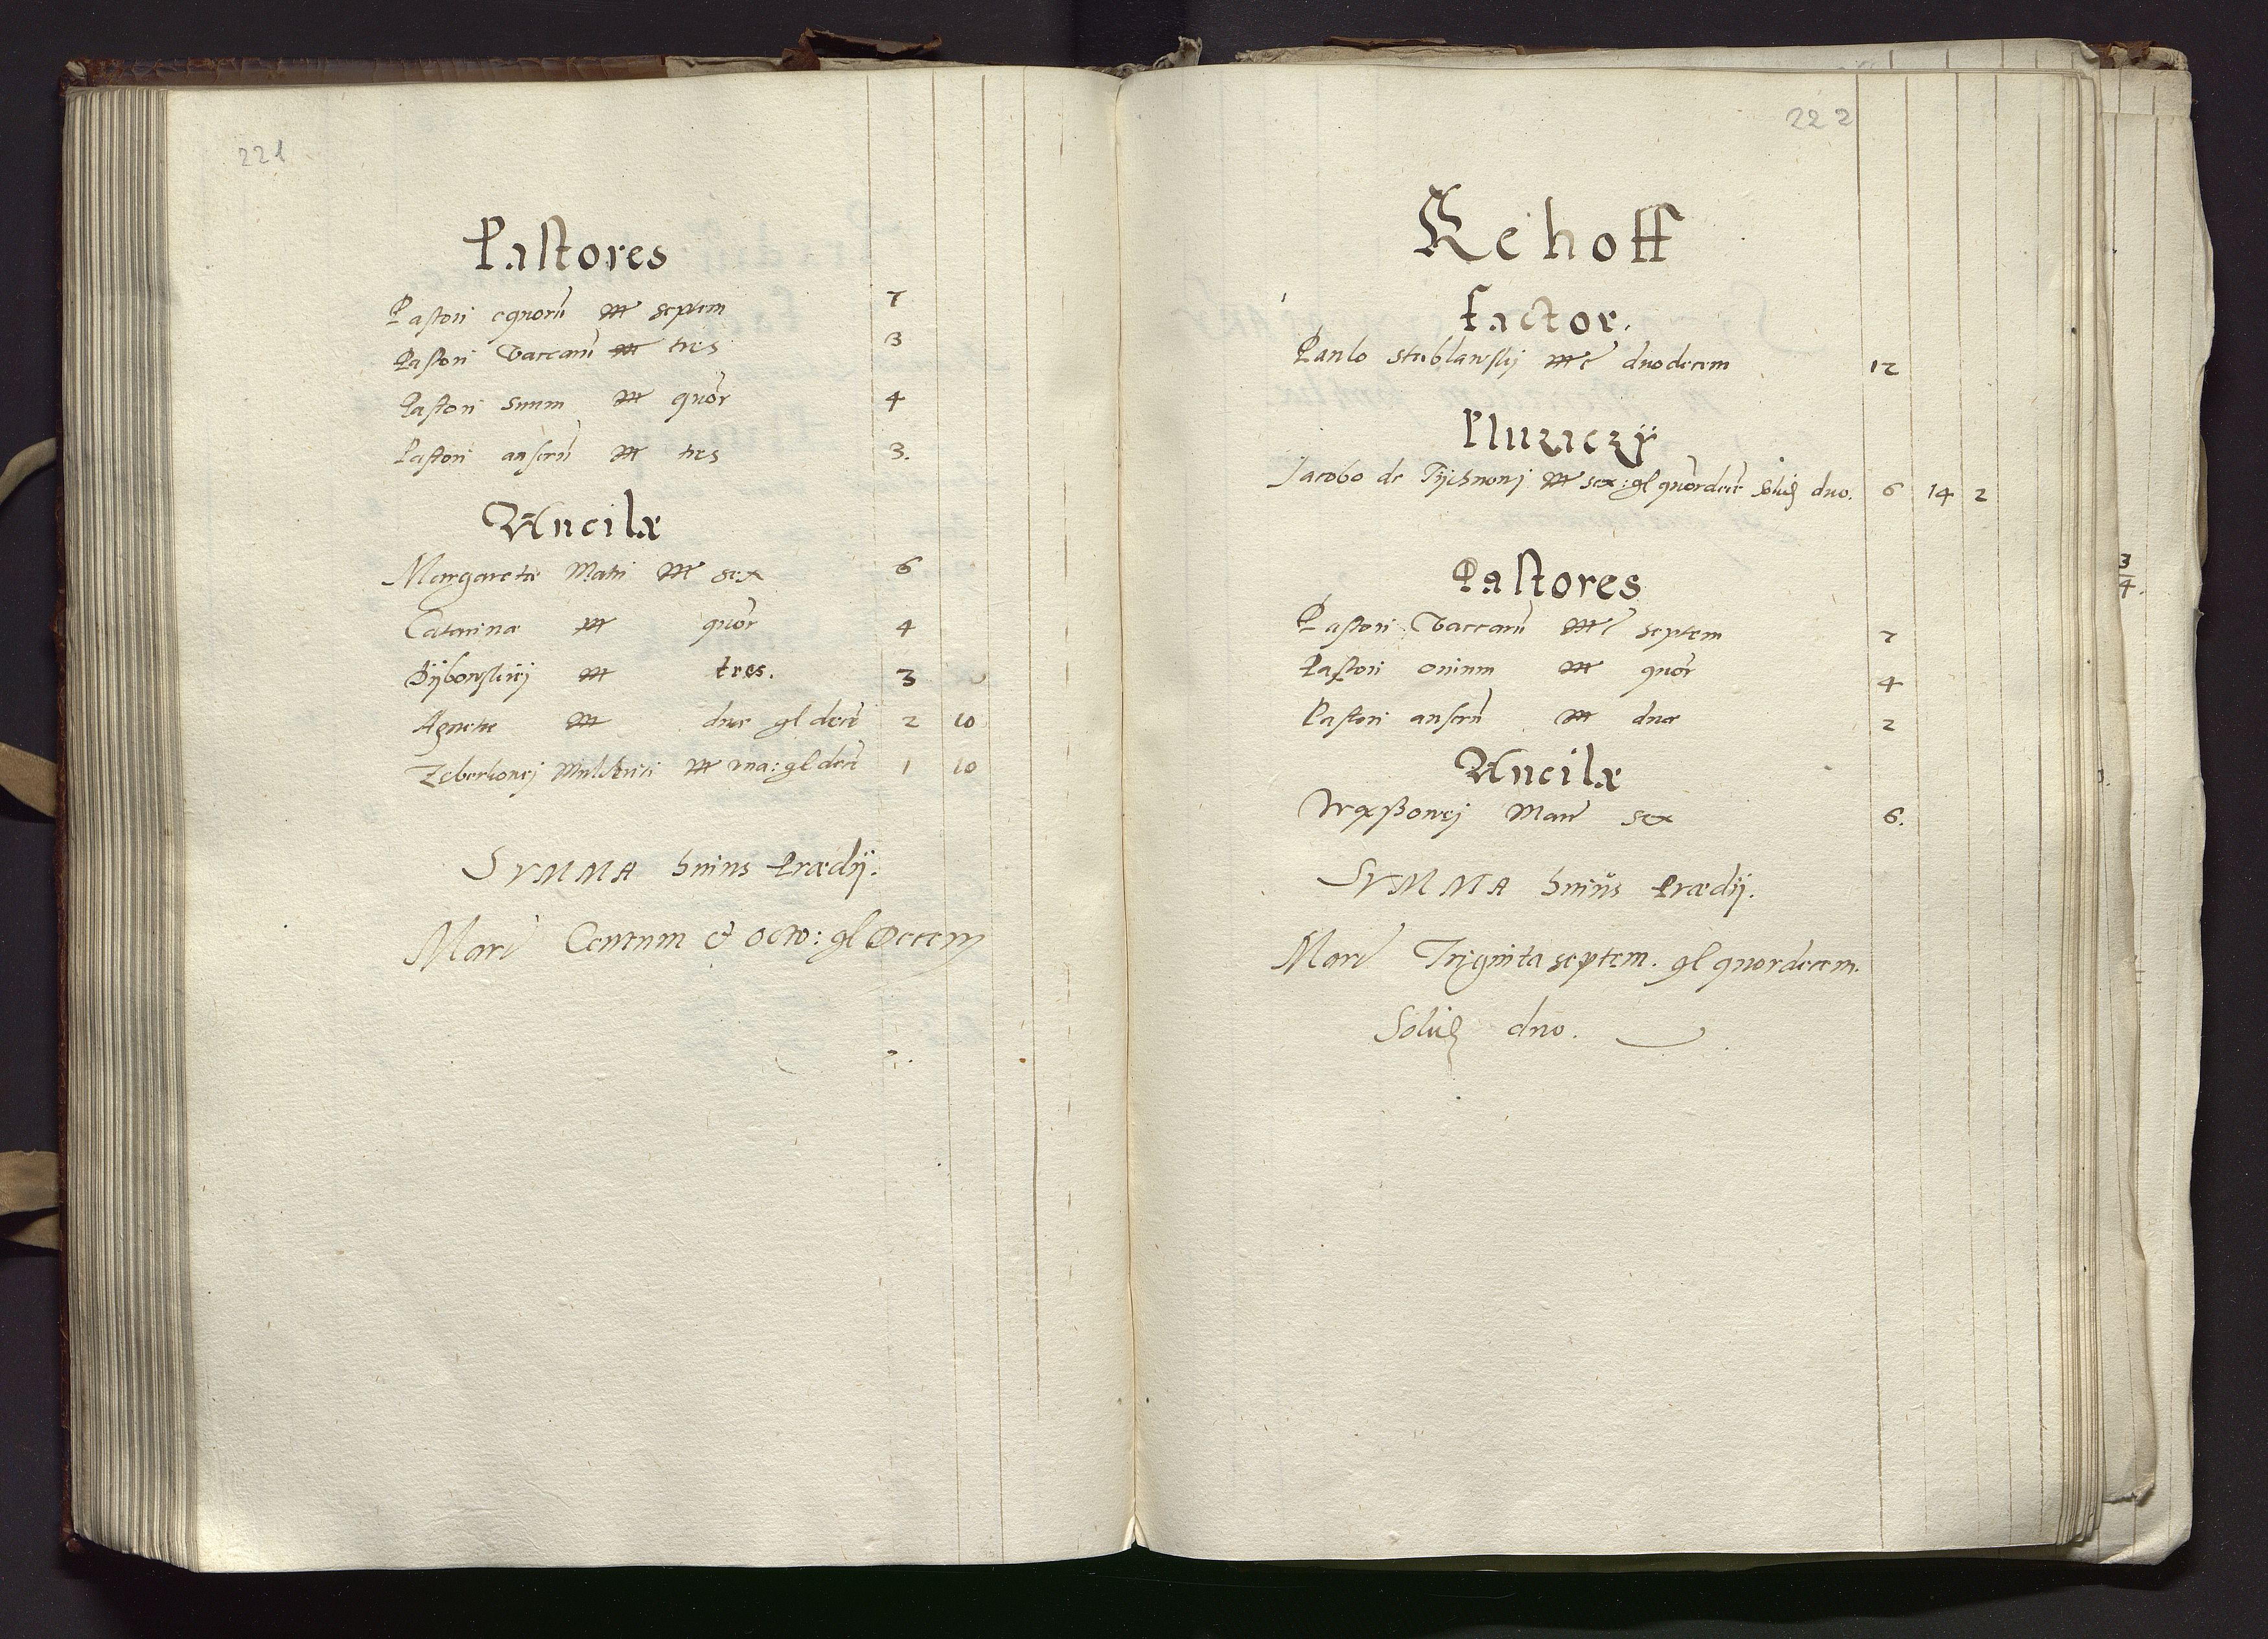 221
Pastores
Pastori equorū mr septem 7
Pastori Vaccarū mr tres 3
Pastori Suum mr quōr 4
Pastori anserū mr tres 3.
Ancilæ
Margaretæ Matri mr sex 6
Catarinæ mr quōr 4
mr tres. 3
Agnetæ mr duæ gl decē 2 10
mr una: gl decē 1 10
SVMMA huius Prædij.
Marc Centum et octo: gl Decem
222
Rehoff
Factor.
Paulo Stublawskij mrc duodecem 12
Pluziczÿ
Jacobo de Tÿchnowÿ mr sex: gl quōrdecē Solid duo. 6 14 2
Pastores
Pastori Vaccarū mrc septem 7
Pastori ouium mr quōr 4
Pastori anserū mr duæ 2
Ancilæ
Marc sex 6.
SVMMA huiŭs Prædij.
Marc Trÿginta septem. gl quordecem.
Solid duo.
3
4.